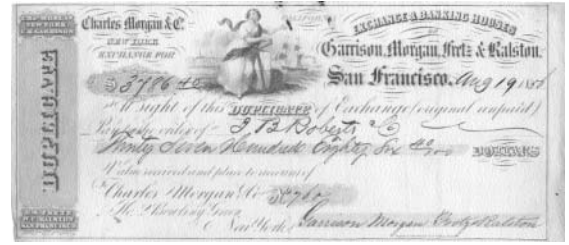 CHAS MORGAN
NEW YORK
C.K. GARRISON
DUPLICATE
W.S. FRETZ
W.C. RALSTON
SAN FRANCISCO
Charles Morgan & Co.
NEW YORK
EXCHANGE FOR
$3786 40
EXCHANGE & BANKING HOUSES
OF
Garrison, Morgan, Fretz & Ralston.
San Francisco, Aug 19 185
At sight of this DUPLICATE of Exchange (original unpaid)
Pay to the order of J B Roberts & Co
Thirty Seven Hundred Eighty Six 40/100 DOLLARS
Value received and place to account of
To Charles Morgan & Co
No. 2 Bowling Green
New York
Garrison Morgan Fretz & Ralston